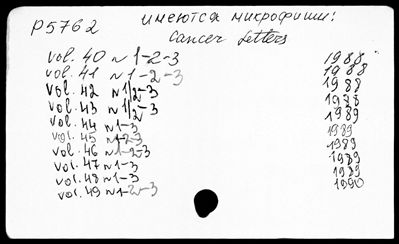 P5762 имеются микрофиши!
Cancer Letters
vol. 40 N 1-2-3 1988
vol. 41 N 1-2-3 1988
vol. 42 N 1/2-3 1988
vol. 43 N 1/2-3 1988
vol. 44 N 1-3 1989
vol. 45 N 1-2-3 1989
vol. 46 N 1-2-3 1989
vol. 47 N 1-3 1989
vol. 48 N 1-3 1989
vol. 49 N 1-2-3 1990